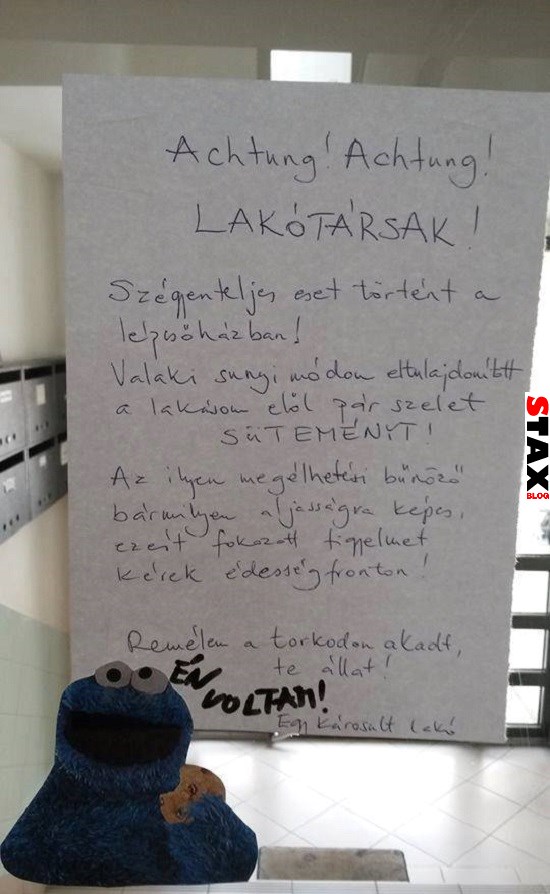 Achtung! Achtung!
LAKÓTÁRSAK!
Szégyenteljes eset történt a
lépcsőházban!
Valaki sunyi módon eltulajdonított
a lakásom elől pár szelet
SÜTEMÉNYT!
Az ilyen megélhetési bűnöző
bármilyen aljasságra képes,
ezért fokozott figyelmet
kérek édességfronton!
Remélem a torkodon akadt,
te állat!
ÉN
VOLTAM!
Egy károsult lakó
STAX
BLOG